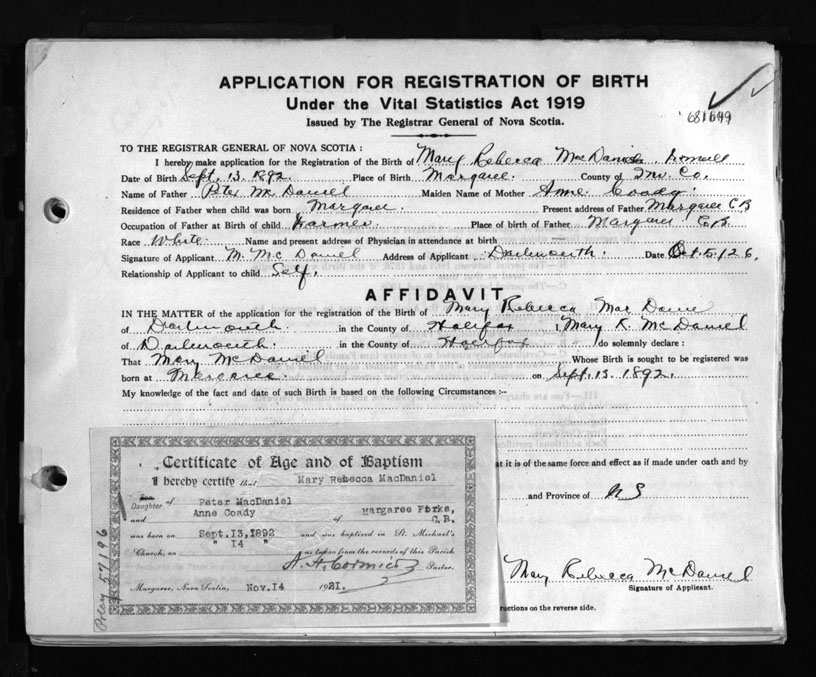 APPLICATION FOR REGISTRATION OF BIRTH
Under the Vital Statistics Act 1919
Issued by The Registrar General of Nova Scotia.
681699
TO THE REGISTRAR GENERAL OF NOVA SCOTIA :
I hereby make application for the Registration of the Birth of Mary Rebecca MacDaniel
Date of Birth Sept. 13. 1892. Place of Birth Margaree. County of Inv. Co.
Name of Father Peter McDaniel Maiden Name of Mother Anne Coady.
Residence of Father when child was born Margaree. Present address of Father Margaree C B
Occupation of Father at Birth of child Farmer Place of birth of Father Margaree C.B.
Race White. Name and present address of Physician in attendance at birth
Signature of Applicant M. McDaniel Address of Applicant Dartmouth. Date Oct. 5/26.
Relationship of Applicant to child Self.
AFFIDAVIT
IN THE MATTER of the application for the registration of the Birth of Mary Rebecca MacDaniel
of Dartmouth. in the County of Halifax I, Mary R. McDaniel
of Dartmouth. in the County of Halifax do solemnly declare :
That Mary McDaniel Whose Birth is sought to be registered was
born at Margaree. on Sept. 13. 1892.
My knowledge of the fact and date of such Birth is based on the following Circumstances :-
Certificate of Age and of Baptism
I hereby certify that Mary Rebecca MacDaniel
Son
Daughter of Peter MacDaniel
and Anne Coady of Margaree Forks,
C.B.
was born on Sept.13,1892 and was baptized in St. Michael's
Church, on " 14 " as taken from the records of this Parish
A. H. Cormier Pastor.
Margaree, Nova Scotia, Nov.14 1921.
Policy 57196
at it is of the same force and effect as if made under oath and by
and Province of N S
Mary Rebecca McDaniel
Signature of Applicant.
ructions on the reverse side.